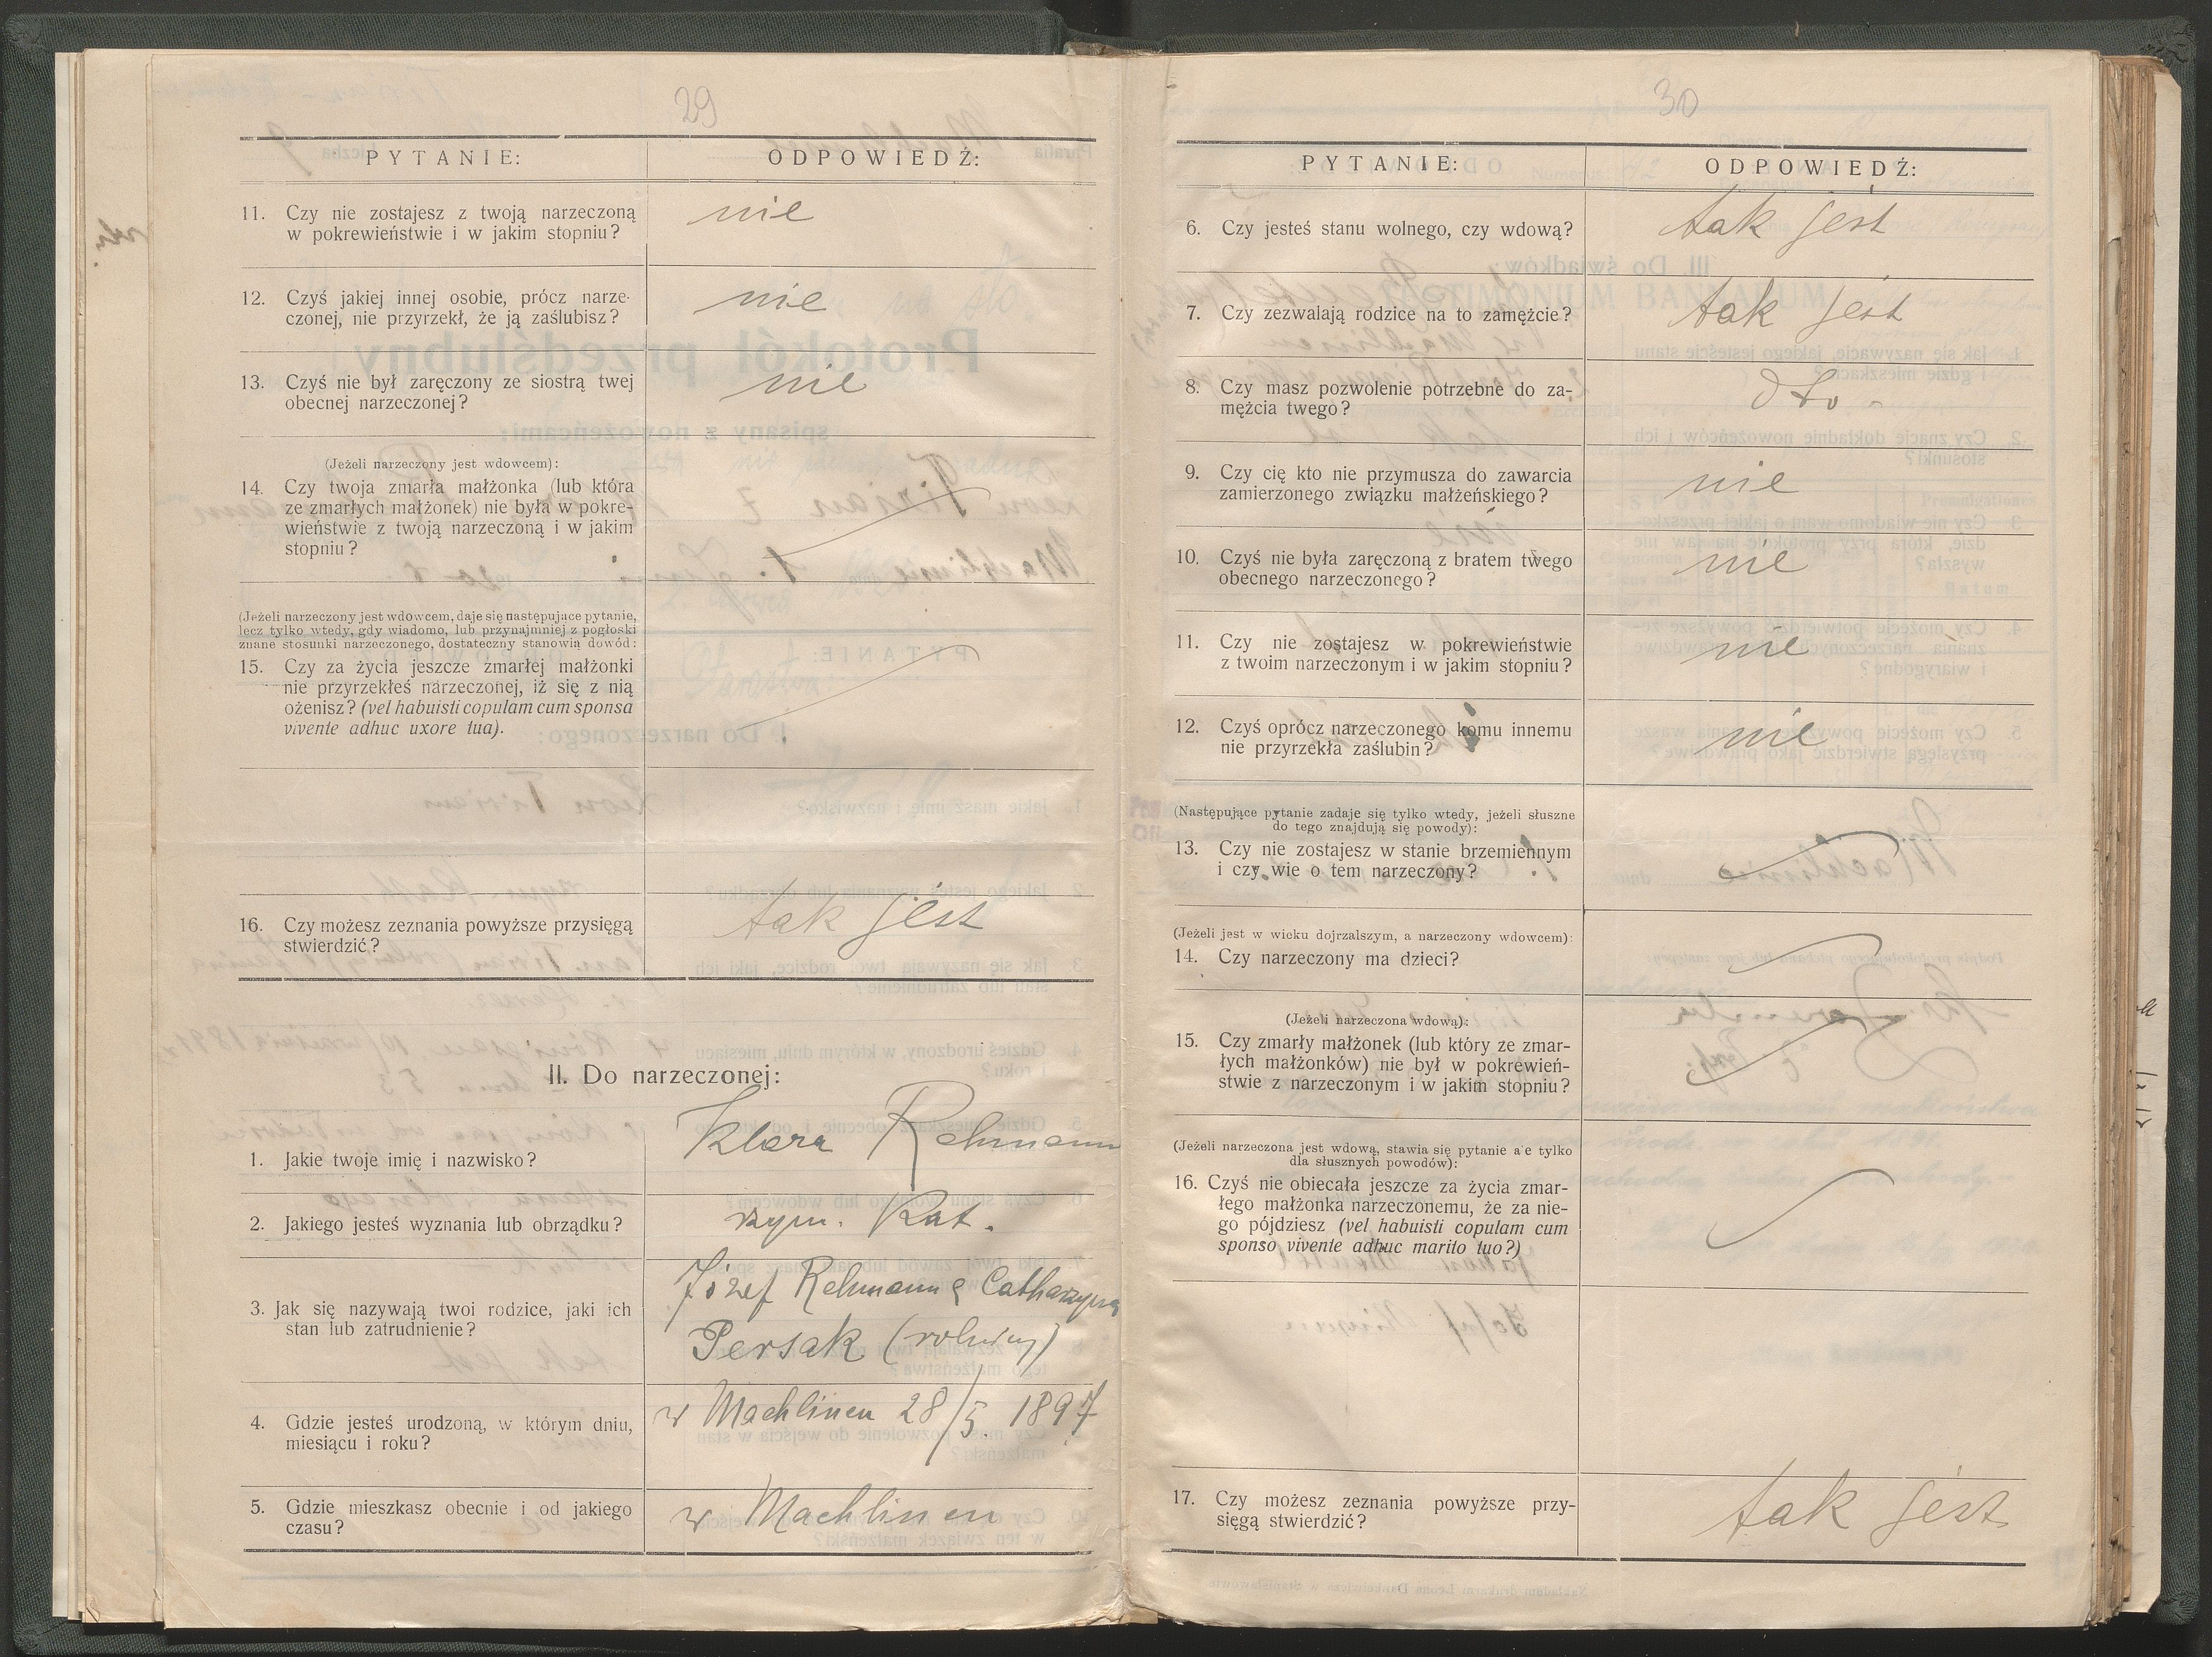 29
PYTANIE:
ODPOWIEDŹ:
11. Czy nie zostajesz z twoją narzeczoną
w pokrewieństwie i w jakim stopniu?
nie
12. Czyś jakiej innej osobie, prócz narze-
czonej, nie przyrzekł, że ją zaślubisz?
nie
13. Czyś nie był zaręczony ze siostrą twej
obecnej narzeczonej?
nie
(Jeżeli narzeczony jest wdowcem):
14. Czy twoja zmarła małżonka (lub która
ze zmarłych małżonek) nie była w pokre-
wieństwie z twoją narzeczoną i w jakim
stopniu?
(Jeżeli narzeczony jest wdowcem, daje się następujące pytanie,
lecz tylko wtedy, gdy wiadomo, lub przynajmniej z pogłoski
znane stosunki narzeczonego, dostateczny stanowią dowód:
15. Czy za życia jeszcze zmarłej małżonki
nie przyrzekłeś narzeczonej, iż się z nią
ożenisz? (vel habuisti copulam cum sponsa
vivente adhuc uxore tua).
16. Czy możesz zeznania powyższe przysięgą
stwierdzić?
tak jest
II. Do narzeczonej:
1. Jakie twoje imię i nazwisko?
Klara Rehmann
2. Jakiego jesteś wyznania lub obrządku?
rzym. Kat.
3. Jak się nazywają twoi rodzice, jaki ich
stan lub zatrudnienie?
Józef Rehmann & Catharzyna
Persak (rolnicy)
4. Gdzie jesteś urodzoną, w którym dniu,
miesiącu i roku?
w Machlinen 28/5. 1897
5. Gdzie mieszkasz obecnie i od jakiego
czasu?
w Machlinen
30
PYTANIE:
ODPOWIEDŹ:
6. Czy jesteś stanu wolnego, czy wdową?
tak jest
7. Czy zezwalają rodzice na to zamężcie?
tak jest
8. Czy masz pozwolenie potrzebne do za-
mężcia twego?
dto -
9. Czy cię kto nie przymusza do zawarcia
zamierzonego związku małżeńskiego?
nie
10. Czyś nie była zaręczoną z bratem twego
obecnego narzeczonego?
nie
11. Czy nie zostajesz w pokrewieństwie
z twoim narzeczonym i w jakim stopniu?
nie
12. Czyś oprócz narzeczonego komu innemu
nie przyrzekła zaślubin?
nie
(Następujące pytanie zadaje się tylko wtedy, jeżeli słuszne
do tego znajdują się powody):
13. Czy nie zostajesz w stanie brzemiennym
i czy wie o tem narzeczony?
(Jeżeli jest w wieku dojrzalszym, a narzeczony wdowcem):
14. Czy narzeczony ma dzieci?
(Jeżeli narzeczona wdową):
15. Czy zmarły małżonek (lub który ze zmar-
łych małżonków) nie był w pokrewień-
stwie z narzeczonym i w jakim stopniu?
(Jeżeli narzeczona jest wdową, stawia się pytanie a'e tylko
dla słusznych powodów):
16. Czyś nie obiecała jeszcze za życia zmar-
łego małżonka narzeczonemu, że za nie-
go pójdziesz (vel habuisti copulam cum
sponso vivente adhuc marito tuo?)
17. Czy możesz zeznania powyższe przy-
sięgą stwierdzić?
tak jest